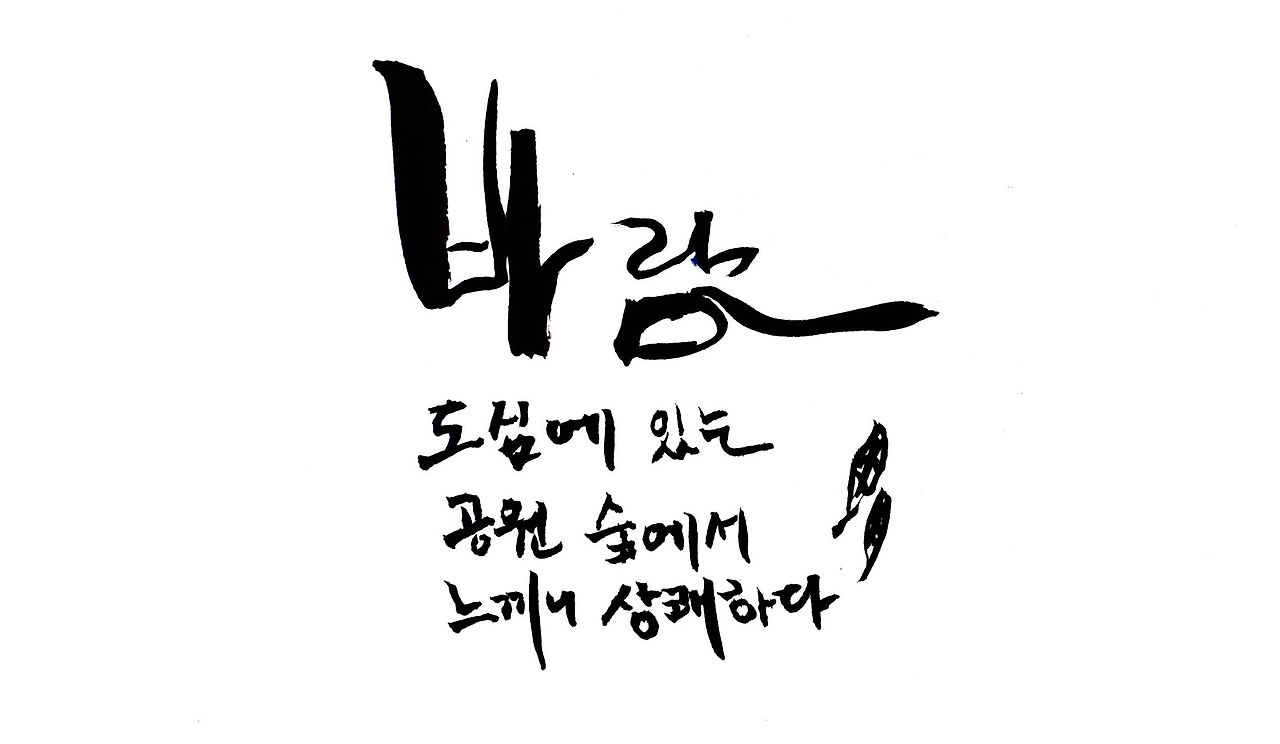 바람
도심에 있는
공원 숲에서
느끼니 상쾌하다